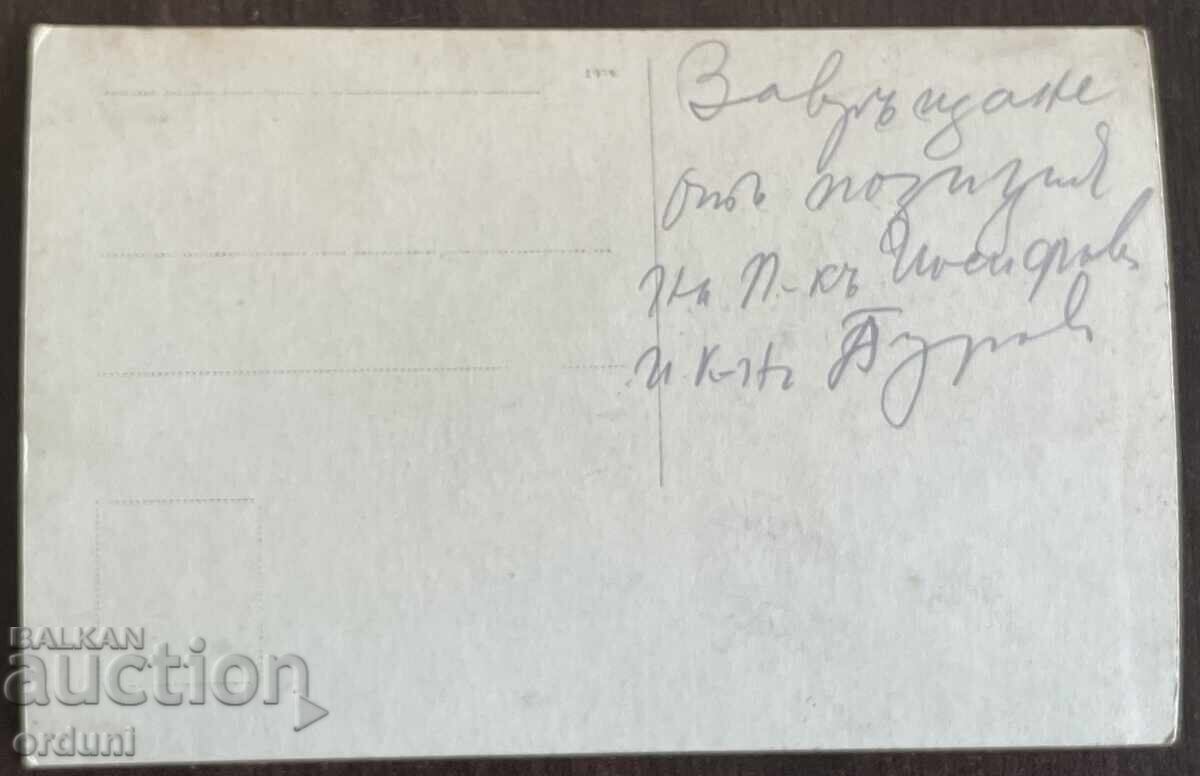 Завръщане
отъ позиция
на п-къ Йосифовъ
и к-нъ Буров
BALKAN
auction
orduni